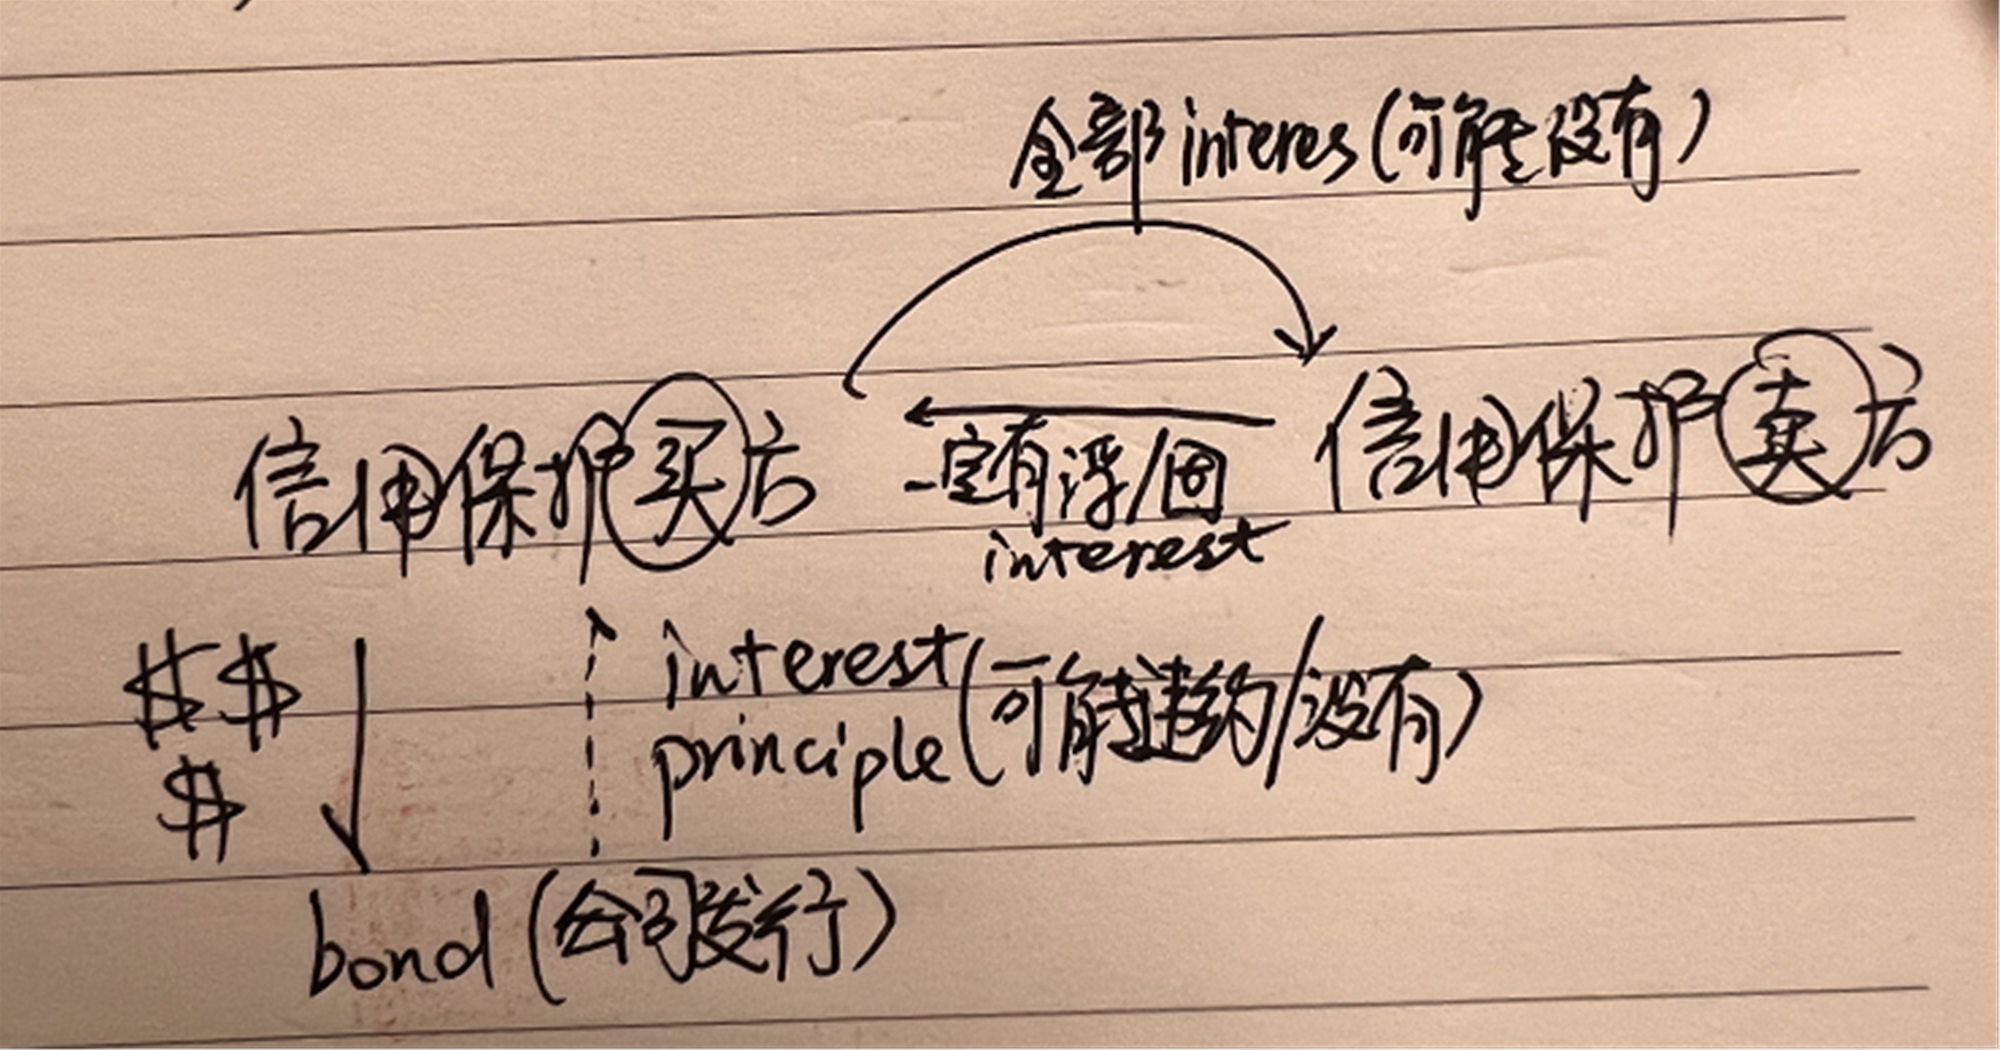 全部interes(可能没有)
信用保护买方
一定有浮/固
interest
信用保护卖方
$$
$
interest
principle
(可能违约/没有)
bond(公司发行)